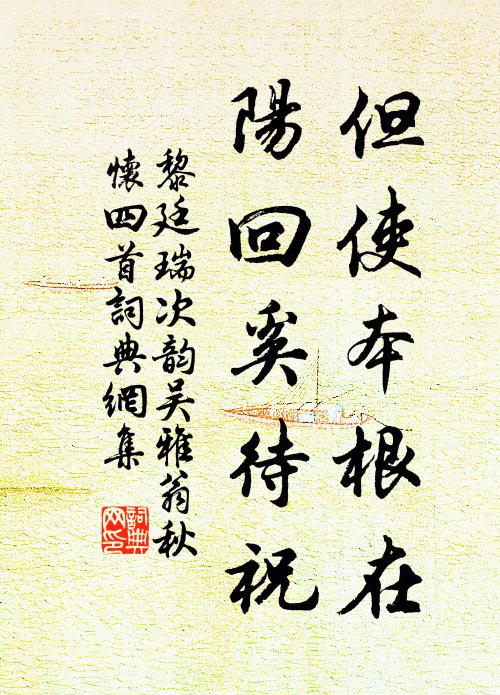 但使本根在
陽回奚待祝
黎廷瑞次韵吴雅翁秋
懷四首詞典網集
詞典
网印